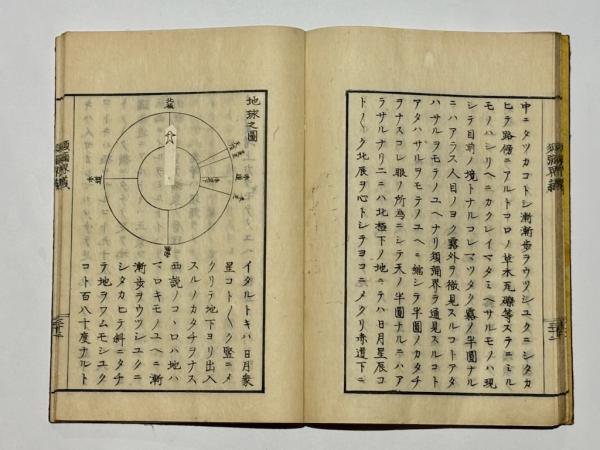 中ニタツカコトシ漸漸歩ヲウツシユクニシタカ
ヒテ路傍ニアルトコロノ草木瓦礫等スラニミル
モノハシリヘニカクレイマタミヘサルモノハ現
シテ目前ノ境トナルコレマツタク霧ノ半圓ナル
ニハアラス人目ノヨク霧外ヲ徹見スルコトアタ
ハサルヲモテノユヘナリ須彌界ヲ通見スルコト
アタハサルヲモテノユヘニ縮シテ半圓ノカタチ
ヲナスコレ眼ノ所為ニシテ天ノ半圓ナルニハア
ラサルナリ二ニハ北極下ノ地ニテハ日月星辰コ
トノク北辰ヲ心トシテヨコニメクリ赤道下ニ
地球之圖
北極
赤道
イタルトキハ日月衆
星コトノク竪ニメ
クリテ地下ヨリ出入
スルノカタチヲナス
西説ノコヽロハ地ハ
マロキモノユヘニ漸
漸歩ヲウツシユクニ
シタカヒテ斜ニタチ
テ地ヲワムモシユク
コト百八十度ナルト